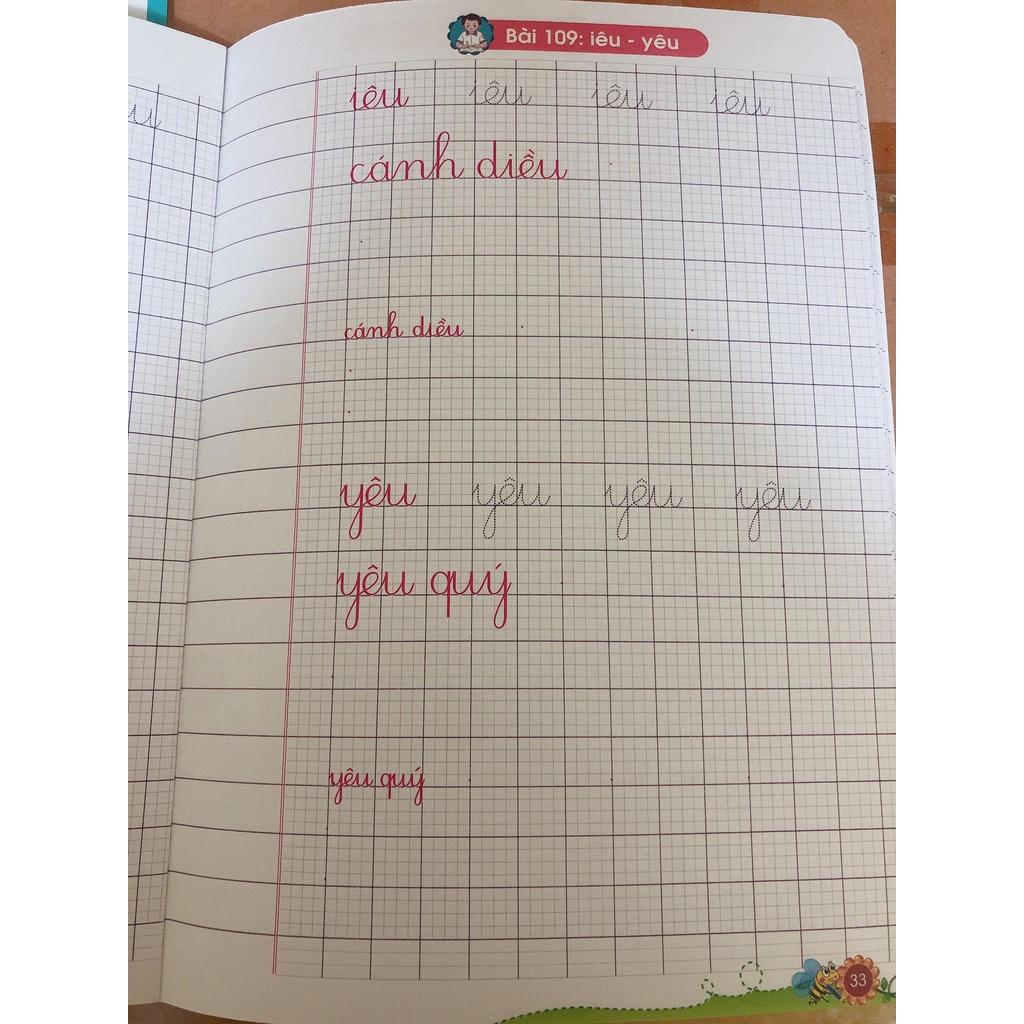 Bài 109: iêu - yêu
iêu iêu iêu iêu
cánh diều
cánh diều
yêu yêu yêu yêu
yêu quý
yêu quý
33